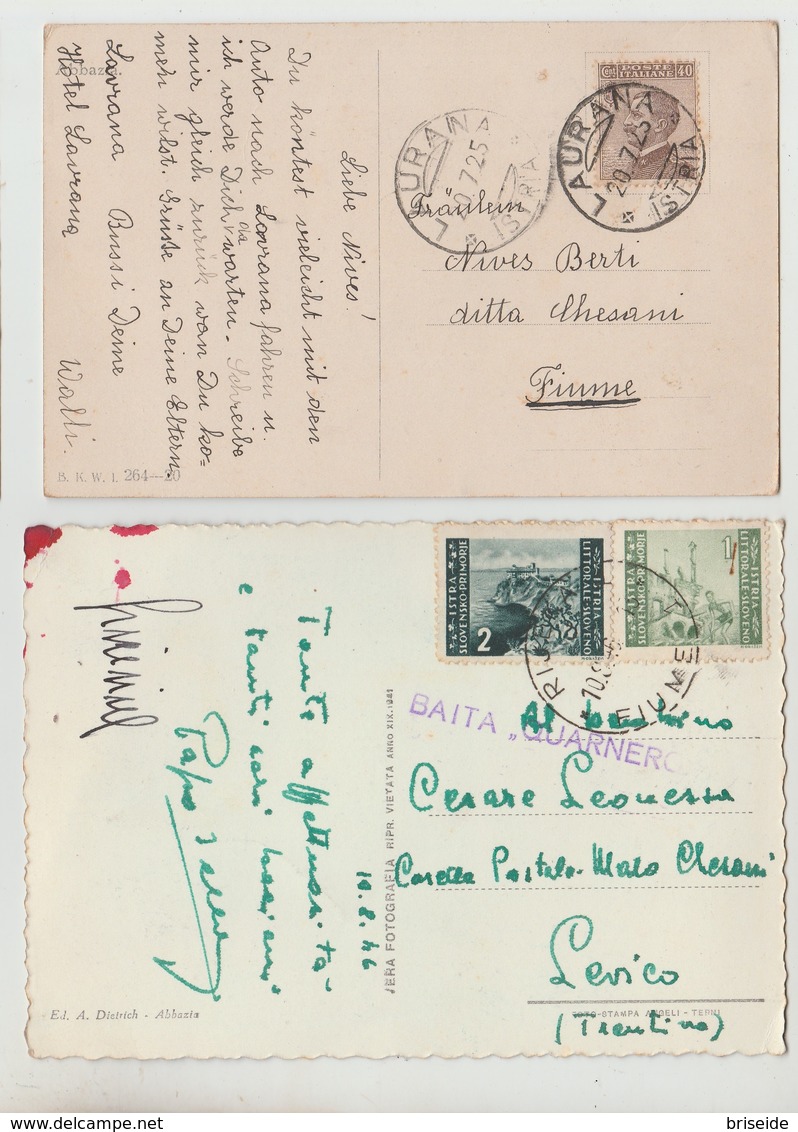 Abbazia.
Liebe Nives!
Du köntest vieleicht mit den
Auto nach Lovrana fahren u.
ich werde Dich da warten. Schreibe
mir gleich zurück wan Du ko-
men wilst. Grüsse an Deine Eltern.
Lovrana Bussi Deine
Hotel Lovrana Walli.
B. K. W. I. 264—20
Cent. POSTE ITALIANE 40
LAURANA
20.7.25
ISTRIA
LAURANA
20.7.25
ISTRIA
Fräulein
Nives Berti
ditta Chesani
Fiume
ISTRA
SLOVENSKO PRIMORJE
ISTRIA
LITTORALE SLOVENO
2
ISTRA
SLOVENSKO PRIMORJE
ISTRIA
LITTORALE SLOVENO
1
FIUME
BAITA „QUARNERO
Tante affettuosità
e tanti cari bacioni
Papo
10.8.46
VERA FOTOGRAFIA RIPR. VIETATA ANNO XIX.1941
Al bambino
Cesare Leonessa
Casella Postale - Maso Chesani
Levico
(Trentino)
Ed. A. Dietrich - Abbazia
FOTO-STAMPA ANGELI - TERNI
briseide